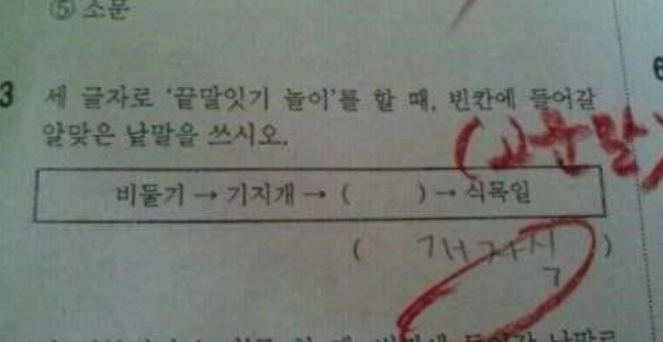 ⑤ 소문
3 세 글자로 '끝말잇기 놀이'를 할 때, 빈칸에 들어갈
알맞은 낱말을 쓰시오.
비둘기 → 기지개 → (　　) → 식목일
( 개자식 )